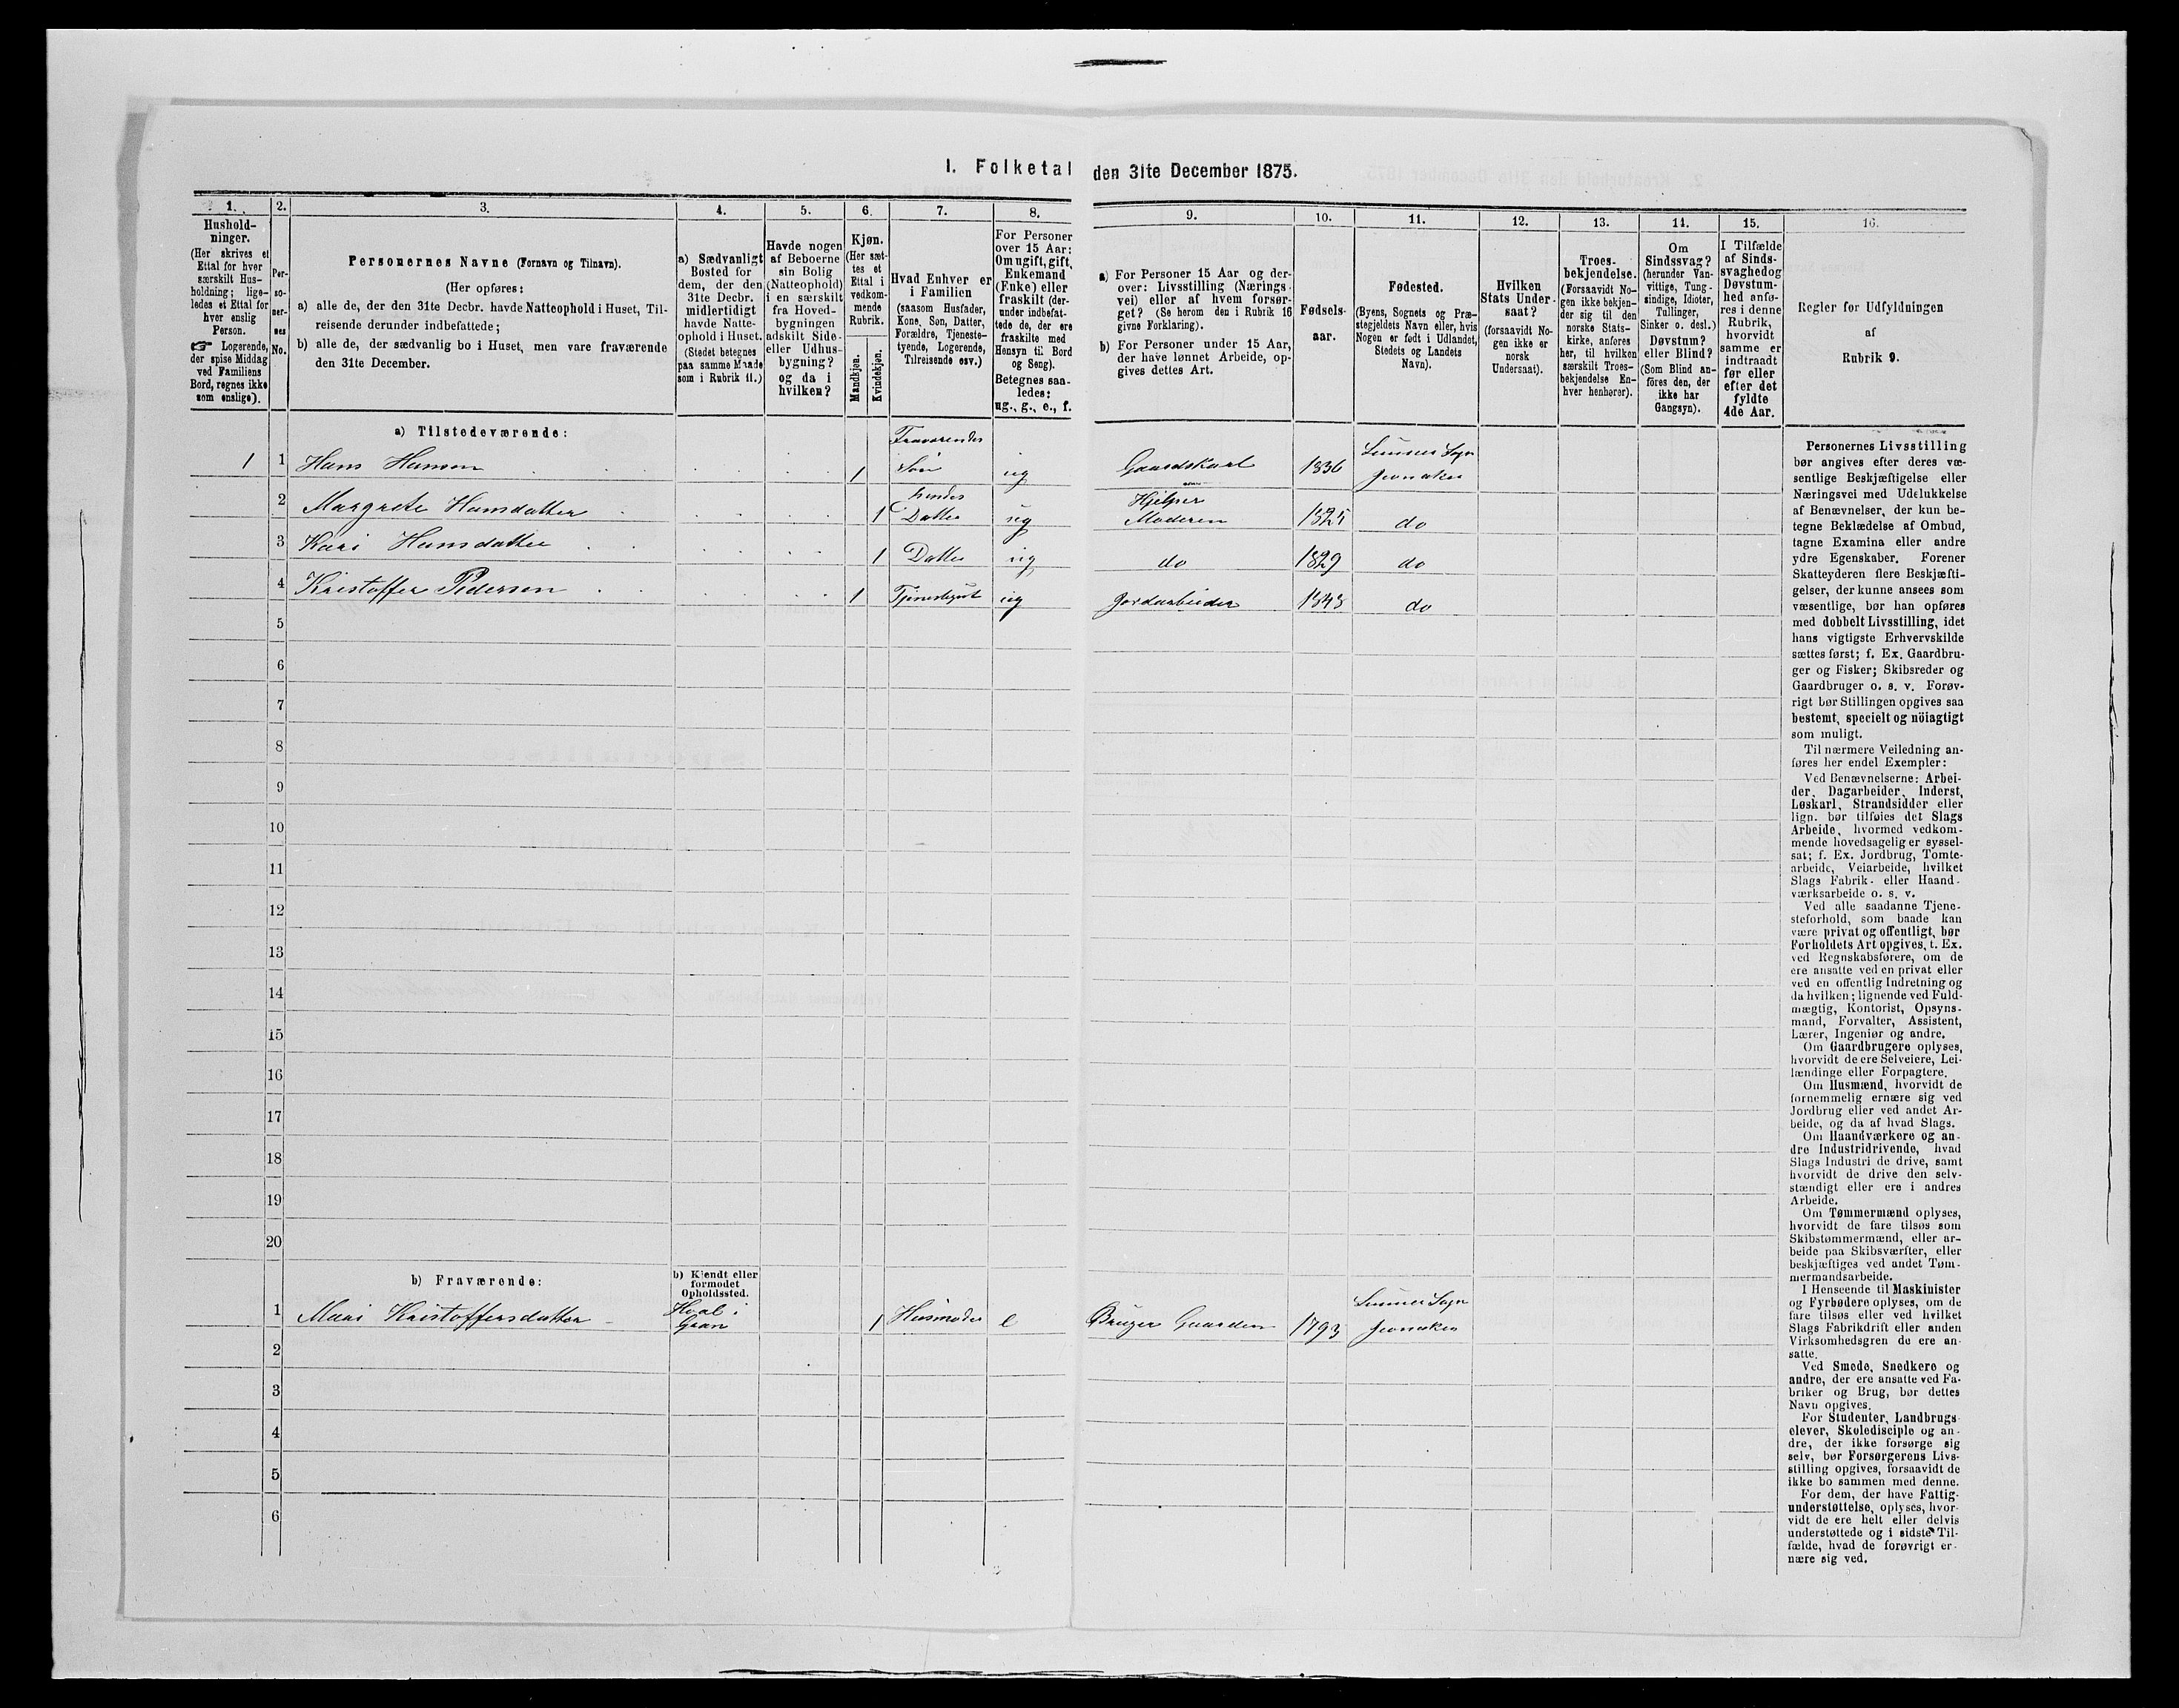 1. Folketal den 31te December 1875.
1. 2. 3. 4. 5. 6. 7. 8. 9. 10. 11. 12. 13. 14. 15. 16.
Hushold-
ninger.
(Her skrives et
Ettal for hver
særskilt Hus-
holdning; lige-
ledes et Ettal for
hver enslig
Person.
☞ Logerende,
der spise Middag
ved Familiens
Bord, regnes ikke
som enslige).
Per-
so-
ner-
nes
No.
Personernes Navne (Fornavn og Tilnavn).
(Her opføres:
a) alle de, der den 31te Decbr. havde Natteophold i Huset, Til-
reisende derunder indbefattede;
b) alle de, der sædvanlig bo i Huset, men vare fraværende
den 31te December.
a) Sædvanligt
Bosted for
dem, der den
31te Decbr.
midlertidigt
havde Natte-
ophold i Huset.
(Stedet betegnes
paa samme Maade
som i Rubrik 11.)
Havde nogen
af Beboerne
sin Bolig
(Natteophold)
i en særskilt
fra Hoved-
bygningen
adskilt Side-
eller Udhus-
bygning?
og da i
hvilken?
Kjøn.
(Her sæt-
tes et
Ettal i
vedkom-
mende
Rubrik.
Mandkjøn.
Kvindekjøn.
Hvad Enhver er
i Familien
(saasom Husfader,
Kone, Søn, Datter,
Forældre, Tjeneste-
tyende, Logerende,
Tilreisende osv.)
For Personer
over 15 Aar:
Om ugift, gift,
Enkemand
(Enke) eller
fraskilt (der-
under indbefat-
tede de, der ere
fraskilte med
Hensyn til Bord
og Seng).
Betegnes saa-
ledes:
ug., g., e., f.
a) For Personer 15 Aar og der-
over: Livsstilling (Nærings-
vei) eller af hvem forsør-
get? (Se herom den i Rubrik 16
givne Forklaring).
b) For Personer under 15 Aar,
der have lønnet Arbeide, op-
gives dettes Art.
Fødsels-
aar.
Fødested.
(Byens, Sognets og Præ-
stegjeldets Navn eller, hvis
Nogen er født i Udlandet,
Stedets og Landets
Navn).
Hvilken
Stats Under-
saat?
(forsaavidt No-
gen ikke er
norsk
Undersaat).
Troes-
bekjendelse.
(Forsaavidt No-
gen ikke bekjen-
der sig til den
norske Stats-
kirke, anføres
her, til hvilken
særskilt Troes-
bekjendelse En-
hver henhører).
Om
Sindssvag?
(herunder Van-
vittige, Tung-
sindige, Idioter,
Tullinger,
Sinker o. desl.)
Døvstum?
eller Blind?
(Som Blind an-
føres den, der
ikke har
Gangsyn).
I Tilfælde
af Sinds-
svaghedog
Døvstum-
hed anfø-
res i denne
Rubrik,
hvorvidt
samme er
indtraadt
før eller
efter det
fyldte
4de Aar.
Regler for Udfyldningen
af
Rubrik 9.
a) Tilstedeværende:
Fraværendes
Sunner Sogn
1 1 Hans Hansen 1 Søn ug Gaardskarl 1836 Jevnaker
hendes
Hjelper
2 Margrete Hansdatter 1 Datter ug Moderen 1825 do
3 Kari Hansdatter 1 Datter ug do 1829 do
4 Kristoffer Pedersen 1 Tjenestegut ug Jordarbeider 1843 do
5
6
7
8
9
10
11
12
13
14
15
16
17
18
19
20
b) Fraværende:
b) Kjendt eller
formodet
Opholdssted.
Hval i
Sunner Sogn
1 Mari Kristoffersdatter Gran 1 Husmoder e Bruger Gaarden 1793 Jevnaker
2
3
4
5
6
Personernes Livsstilling
bør angives efter deres væ-
sentlige Beskjæftigelse eller
Næringsvei med Udelukkelse
af Benævnelser, der kun be-
tegne Beklædelse af Ombud,
tagne Examina eller andre
ydre Egenskaber. Forener
Skatteyderen flere Beskjæfti-
gelser, der kunne ansees som
væsentlige, bør han opføres
med dobbelt Livsstilling, idet
hans vigtigste Erhvervskilde
sættes først; f. Ex. Gaardbru-
ger og Fisker; Skibsreder og
Gaardbruger o. s. v. Forøv-
rigt bør Stillingen opgives saa
bestemt, specielt og nöiagtigt
som muligt.
Til nærmere Veiledning an-
føres her endel Exempler:
Ved Benævnelserne: Arbei-
der, Dagarbeider, Inderst,
Løskarl, Strandsidder eller
lign. bør tilføies det Slags
Arbeide, hvormed vedkom-
mende hovedsagelig er syssel-
sat; f. Ex. Jordbrug, Tomte-
arbeide, Veiarbeide, hvilket
Slags Fabrik- eller Haand-
værksarbeide o. s. v.
Ved alle saadanne Tjene-
steforhold, som baade kan
være privat og offentligt, bør
Forholdets Art opgives, t. Ex.
ved Regnskabsførere, om de
ere ansatte ved en privat eller
ved en offentlig Indretning og
da hvilken; lignende ved Fuld-
mægtig, Kontorist, Opsyns-
mand, Forvalter, Assistent,
Lærer, Ingeniør og andre.
Om Gaardbrugere oplyses,
hvorvidt de ere Selveiere, Lei-
lændinge eller Forpagtere.
Om Husmænd, hvorvidt de
fornemmelig ernære sig ved
Jordbrug eller ved andet Ar-
beide, og da af hvad Slags.
Om Haandværkere og an-
dre Industridrivende, hvad
Slags Industri de drive, samt
hvorvidt de drive den selv-
stændigt eller ere i andres
Arbeide.
Om Tømmermænd oplyses,
hvorvidt de fare tilsøs som
Skibstømmermænd, eller ar-
beide paa Skibsværfter, eller
beskjæftiges ved andet Tøm-
mermandsarbeide.
I Henseende til Maskinister
og Fyrbødere oplyses, om de
fare tilsøs eller ved hvilket
Slags Fabrikdrift eller anden
Virksomhedsgren de ere an-
satte.
Ved Smede, Snedkere og
andre, der ere ansatte ved Fa-
briker og Brug, bør dettes
Navn opgives.
For Studenter, Landbrugs-
elever, Skoledisciple og an-
dre, der ikke forsørge sig
selv, bør Forsørgerens Livs-
stilling opgives, forsaavidt de
ikke bo sammen med denne.
For dem, der have Fattig-
understøttelse, oplyses, hvor-
vidt de ere helt eller delvis
understøttede og i sidste Til-
fælde, hvad de forøvrigt er-
nære sig ved.